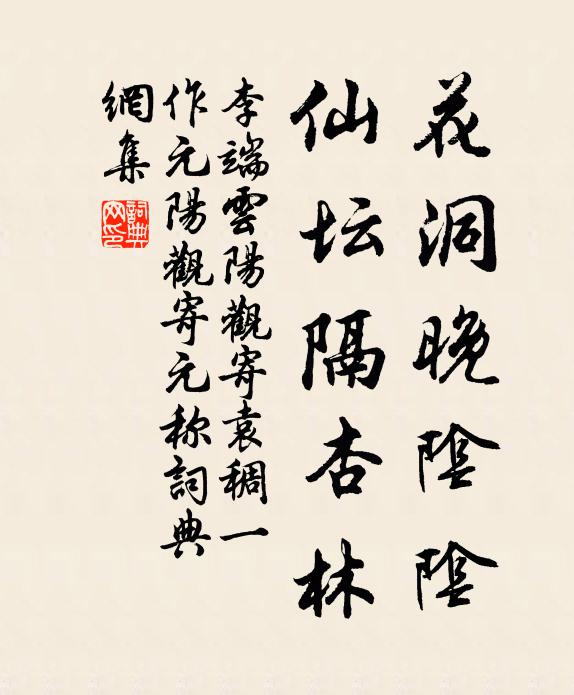 花洞晚陰陰
仙坛隔杏林
李端雲陽觀寄袁稠一
作元陽觀寄元称詞典
網集
詞典
网印